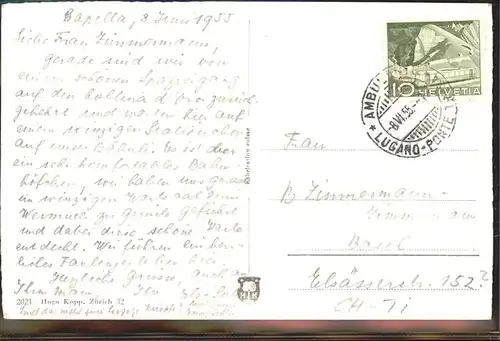 Capella, 8 Juni 1955
Liebe Frau Zimmermann,
Gerade sind wir von
einem schönen Spaziergang
auf den Collina d'oro zurück-
gekehrt und warten hier auf
einem winzigen Stationchen
auf unser Bähnli. Es ist hier
ein sehr komfortables Bahn-
höfchen, wir haben uns gerade
ein winziges
Wermuth zu Gemüte geführt
und dabei diese schöne Karte
entdeckt. Wir führen ein herr-
liches Faulenzerleben hier.
Herzliche Grüsse, auch an
Ihren Mann, Ihr
2021 Hugo Kopp, Zürich 32
HK
10
HELVETIA
AMBU
8.VI.55
LUGANO-PONTE TR
Frau
B Zimmermann
Zimmermann
Basel
Elsässerstr. 152?
CH-Ti